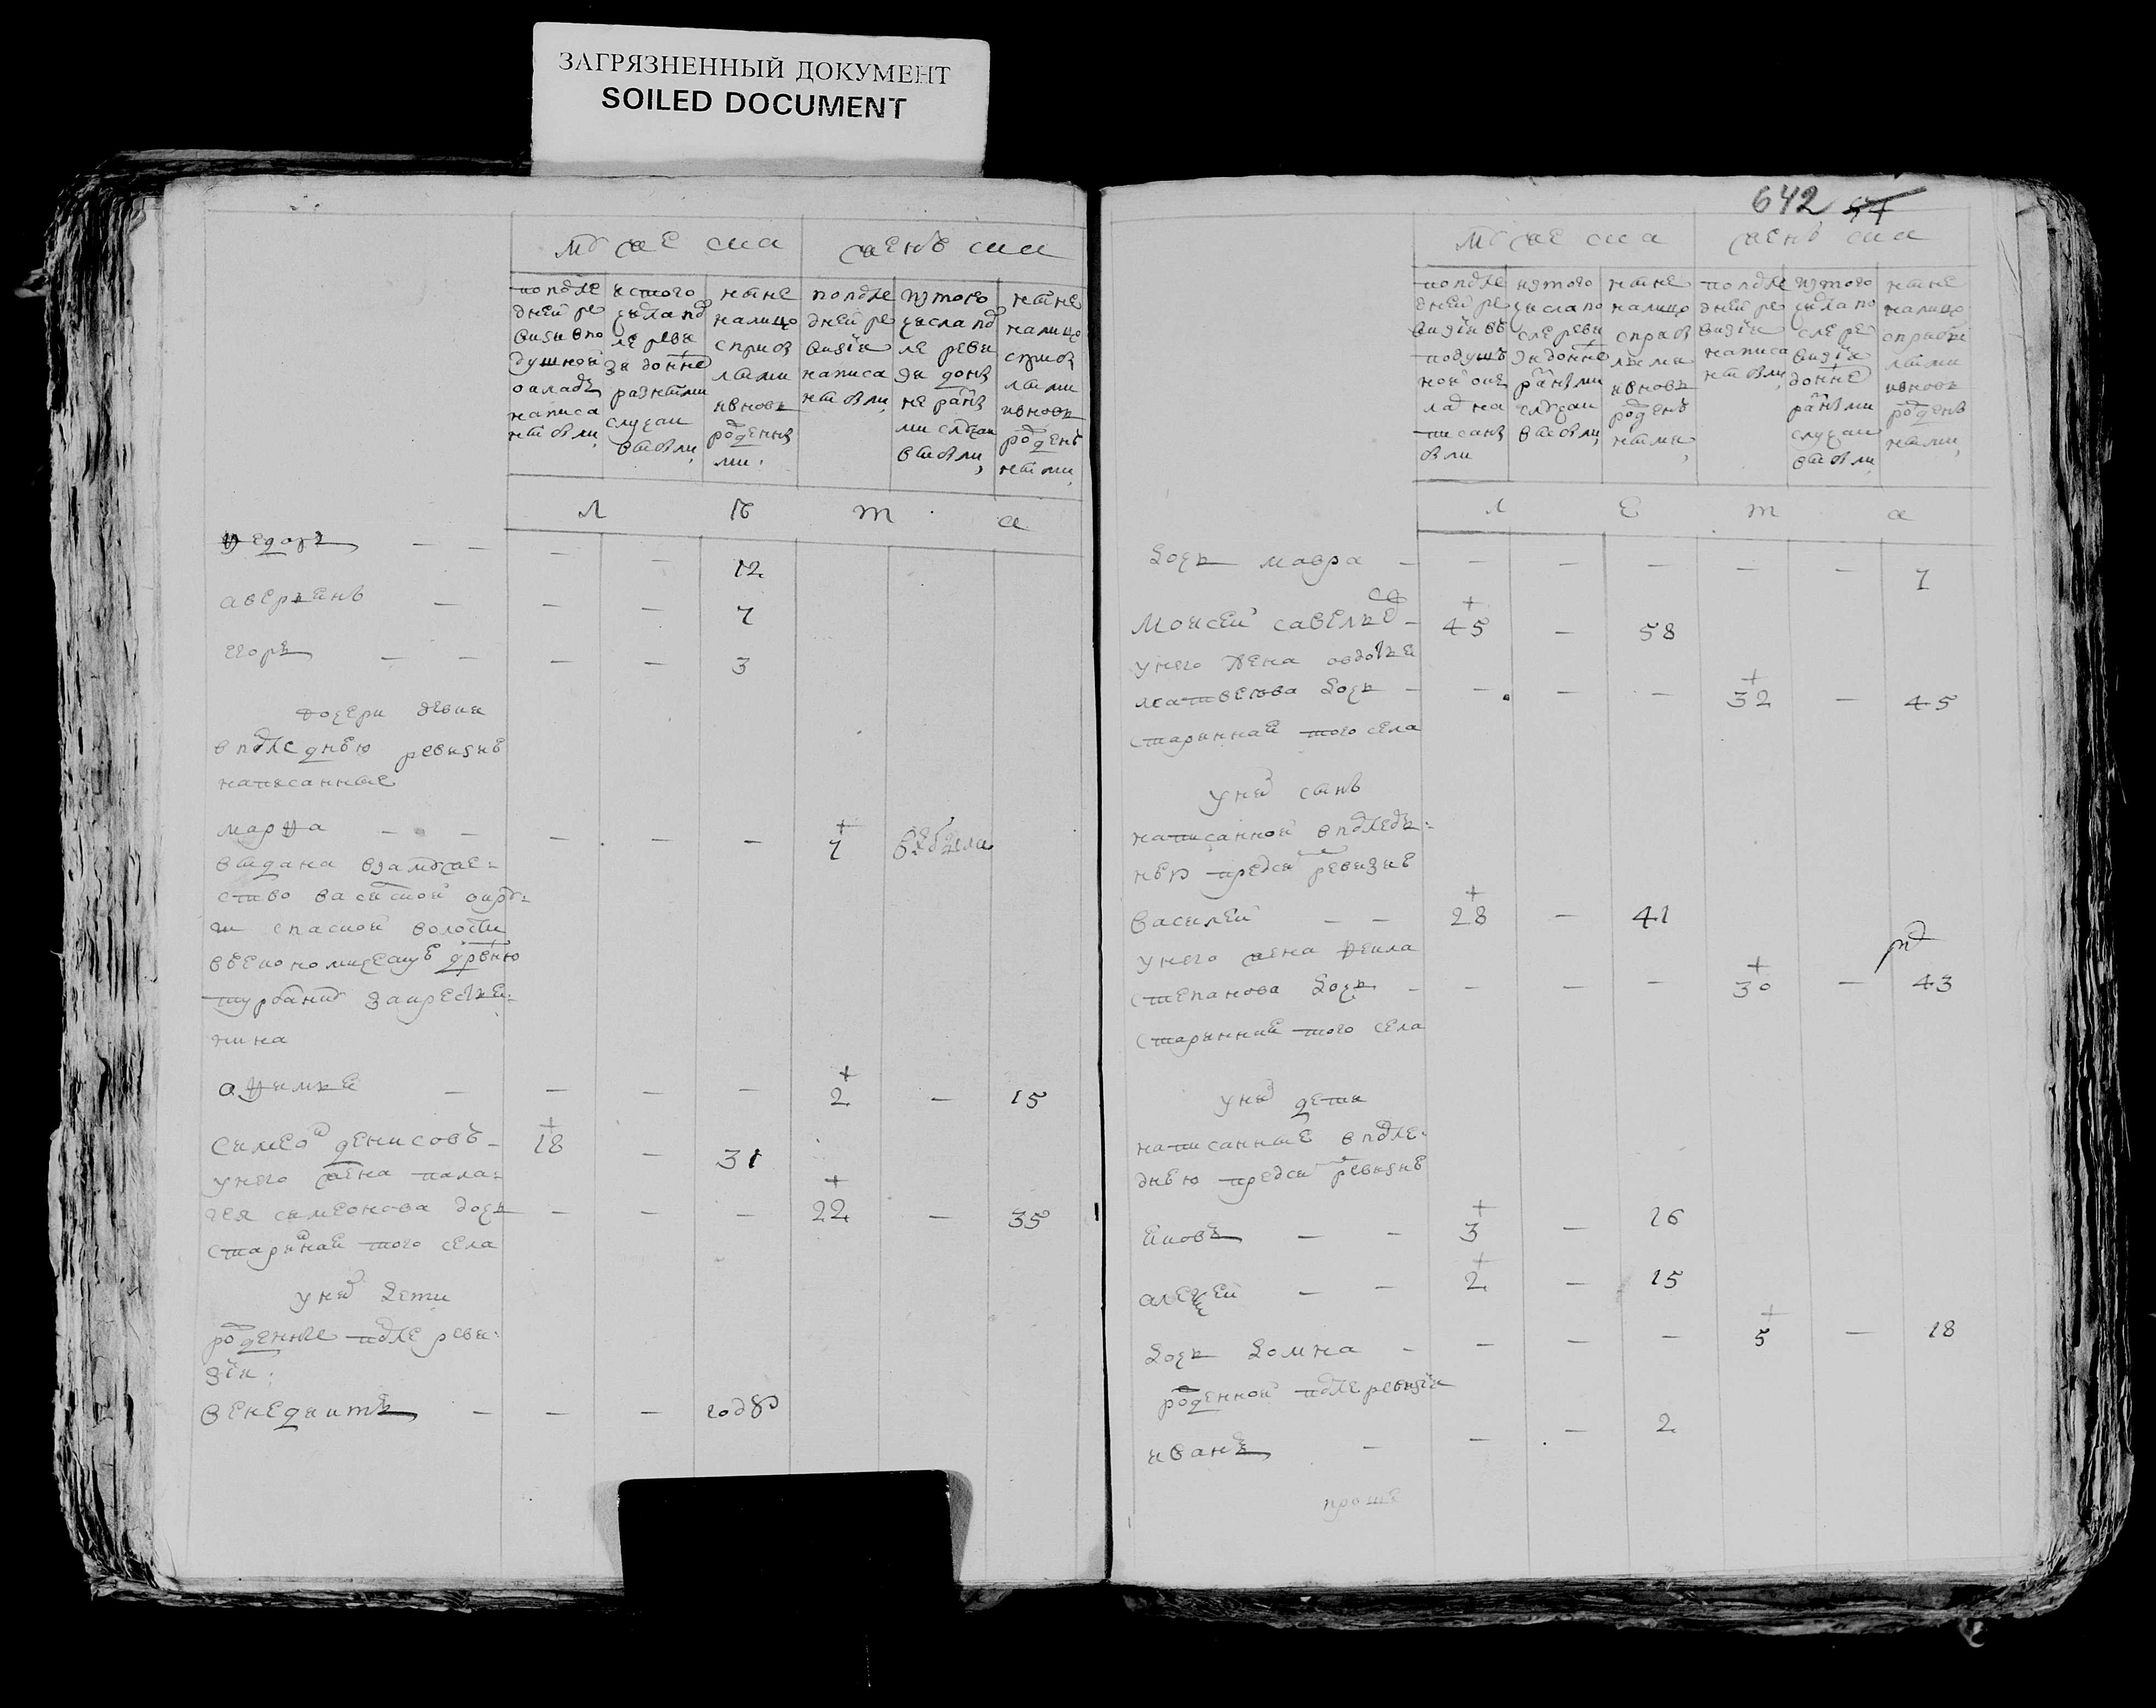 ЗАГРЯЗНЕННЫЙ ДОКУМЕНТ
SOILED DOCUMENT
мужеска женъска
по после
дней ре
визи в по
душной
окладъ
написа
ны были,
ис того
числа по
сле реви
зи донне
разными
случаи
выбыли,
ныне
налицо
с прибы
лыми
и вновь
рожденны
ми.
по после
дней ре
визіи
написа
ны были,
из того
числа по
сле реви
зи донъ
не разны
ми случаи
выбыли,
ныне
налицо
с прибы
лыми
и вновь
рожденъ
ными,
Л ѣ т а
Федоръ — — — — 12
аверьянъ — — — 7
егоръ — — — — 3
дочери девки
в последнею ревизию
написанные
марфа — — — — — + 7
выдана взамуже-
ство
спаской волости
в экономическую деревню
за крестья-
нина
афимья — — — — + 2 — 15
Симеонъ денисовъ — + 18 — 31
у него жена пела-
гея симеонова дочь — — — + 22 — 35
старинная того села
у них дети
рожденные после реви-
зіи:
венедиктъ — — — году
642 57
мужеска женъска
по после
дней ре
визіи въ
подуш
ной ок
лад на
писаны
были
из того
числа по
сле реви
зи донне
разными
случаи
выбыли,
ныне
налицо
с прибы
лыми
и вновь
рожденъ
ными,
по после
дней ре
визіи
написа
ны были,
из того
числа по
сле ре
визіи
донне
разными
случаи
выбыли,
ныне
налицо
с прибы
лыми
и вновь
рожденъ
ными,
Л е т а
дочь мавра — — — — — — 7
Моисей савельевъ — + 45 — 58
у него жена авдотья
матвеева дочь — — — — + 32 — 45
старинная того села
у них сынъ
написанной в последъ-
нею пред сим ревизию
василей — — + 28 — 41
у него жена фекла
степанова дочь — — — — + 30 — 43
старинная того села
у них дети
написанные в после-
днею пред сим ревизию
яковъ — — + 3 — 16
алексей — — + 2 — 15
дочь домна — — — — + 5 — 18
рожденной после ревизіи
иванъ — — — 2